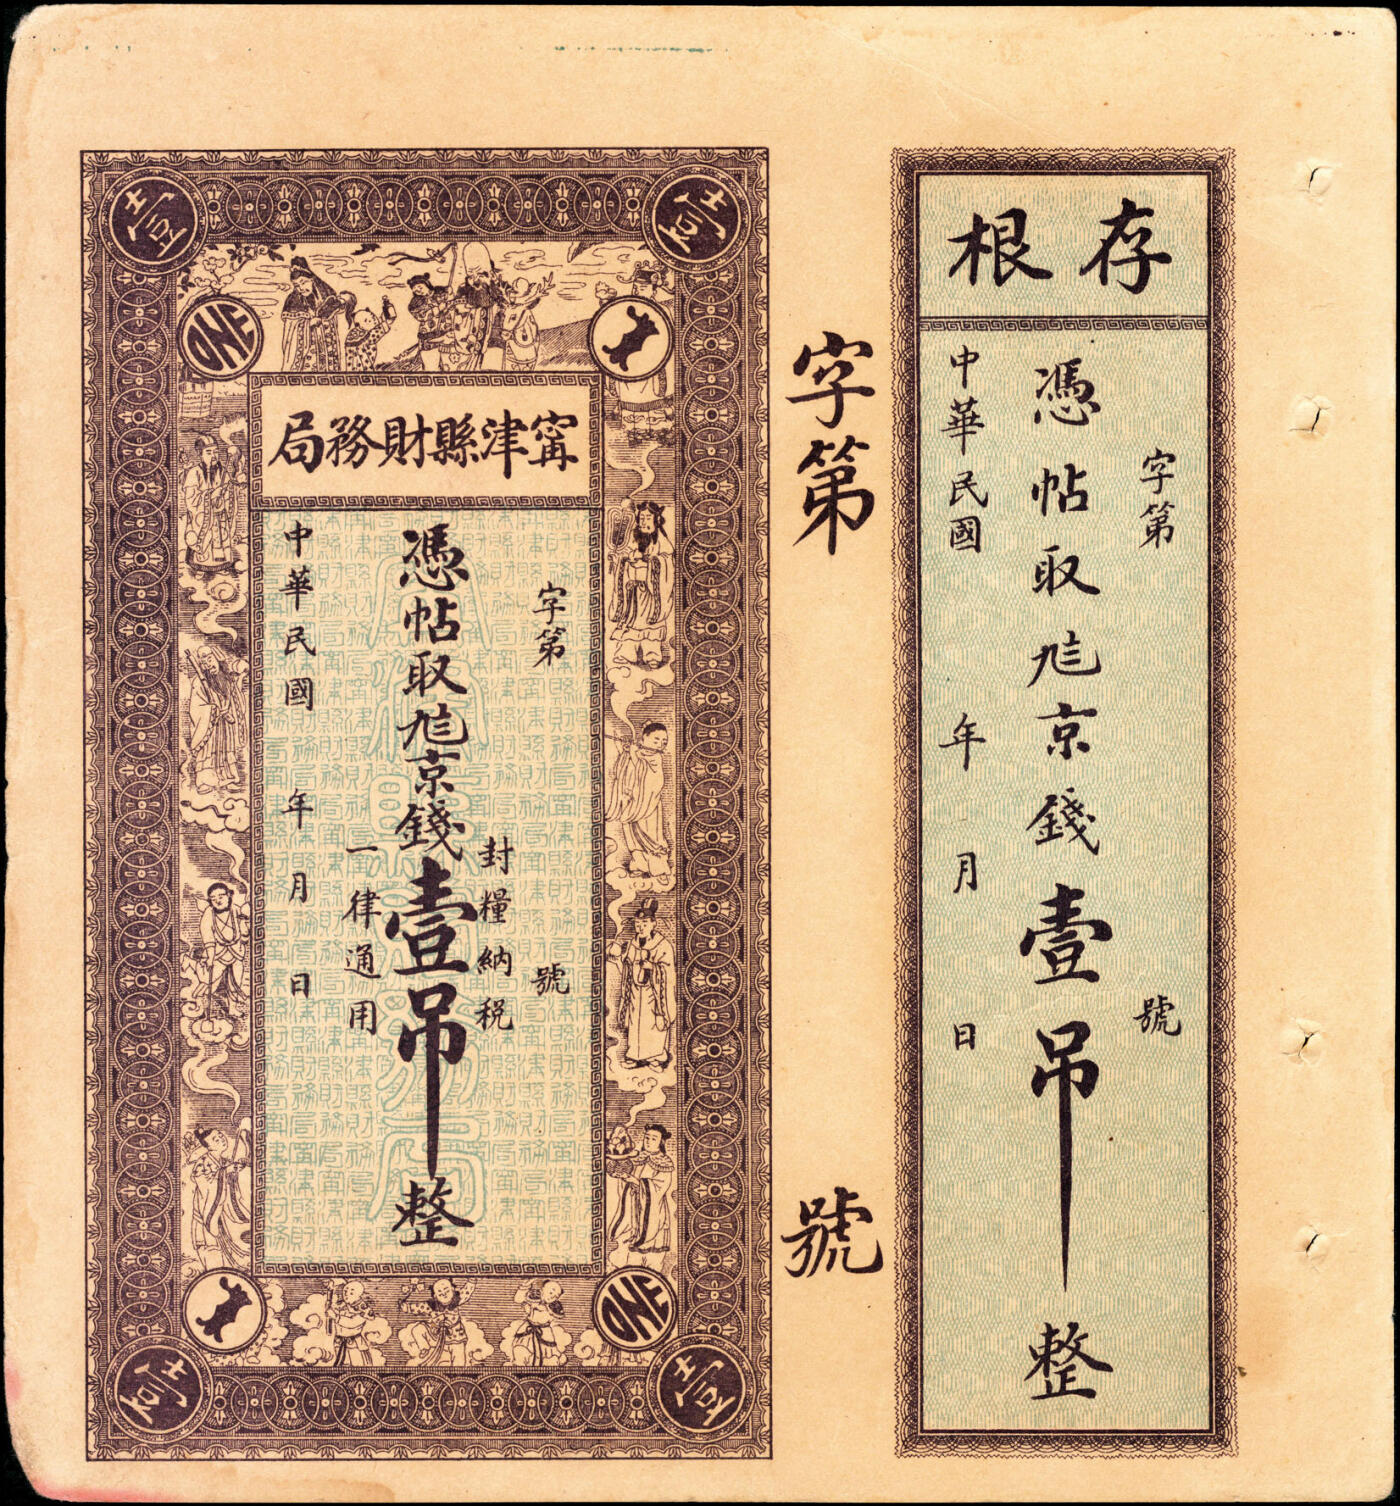 存根
字第 號
憑帖取京錢壹吊整
中華民國 年 月 日
字第 號
壹
壹
ONE
甯津縣財務局
字第 號
封糧納稅
憑帖取京錢壹吊整
一律通用
中華民國 年 月 日
ONE
壹
壹